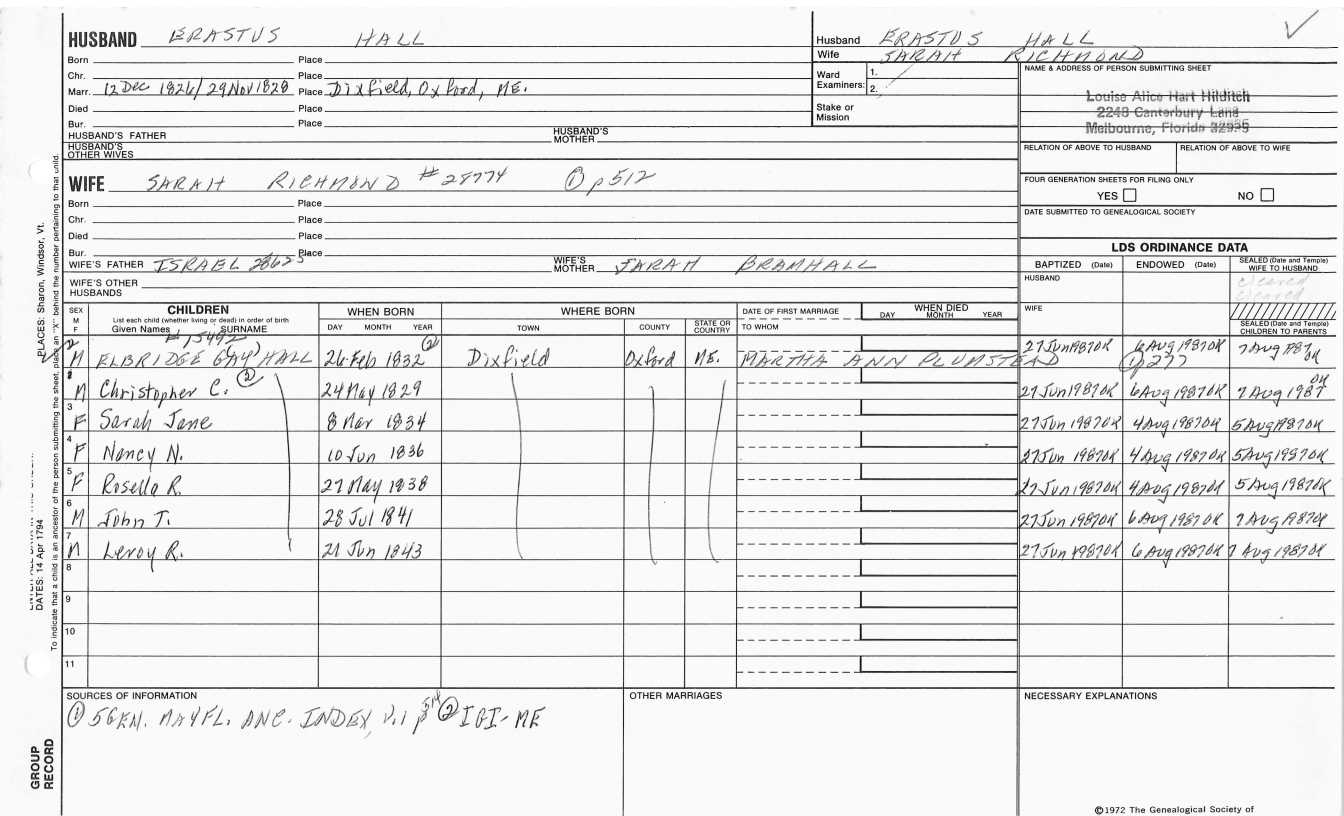 HUSBAND ERASTUS HALL
Born Place
Chr. Place
Marr. 12 Dec 1826/29 Nov 1828 Place Dixfield, Oxford, ME.
Died Place
Bur. Place
HUSBAND'S FATHER HUSBAND'S MOTHER
HUSBAND'S OTHER WIVES
Husband ERASTUS HALL
Wife SARAH RICHMOND
Ward Examiners: 1. 2.
Stake or Mission
NAME & ADDRESS OF PERSON SUBMITTING SHEET
Louise Alice Hart Hilditch
2248 Canterbury Lane
Melbourne, Florida 32935
RELATION OF ABOVE TO HUSBAND RELATION OF ABOVE TO WIFE
FOUR GENERATION SHEETS FOR FILING ONLY
YES NO
DATE SUBMITTED TO GENEALOGICAL SOCIETY
WIFE SARAH RICHMOND #28774 ① p512
Born Place
Chr. Place
Died Place
Bur. Place
WIFE'S FATHER ISRAEL 28625 WIFE'S MOTHER SARAH BRAMHALL
WIFE'S OTHER HUSBANDS
LDS ORDINANCE DATA
BAPTIZED (Date) ENDOWED (Date) SEALED (Date and Temple) WIFE TO HUSBAND
HUSBAND cleared
cleared
WIFE
SEALED (Date and Temple) CHILDREN TO PARENTS
SEX M F CHILDREN WHEN BORN WHERE BORN DATE OF FIRST MARRIAGE WHEN DIED
List each child (whether living or dead) in order of birth
Given Names SURNAME DAY MONTH YEAR TOWN COUNTY STATE OR COUNTRY TO WHOM DAY MONTH YEAR
#15492 ②
2 M ELBRIDGE G(AY) HALL 26 Feb 1832 Dixfield Oxford ME. MARTHA ANN PLUMSTEAD 27 Jun 1987 OK 6 Aug 1987 OK 7 Aug 1987 OK
① p277
1 M Christopher C. ② 24 May 1829 27 Jun 1987 OK 6 Aug 1987 OK 7 Aug 1987 OK
3 F Sarah Jane 8 Mar 1834 27 Jun 1987 OK 4 Aug 1987 OK 5 Aug 1987 OK
4 F Nancy N. 10 Jun 1836 27 Jun 1987 OK 4 Aug 1987 OK 5 Aug 1987 OK
5 F Rosella R. 27 May 1838 27 Jun 1987 OK 4 Aug 1987 OK 5 Aug 1987 OK
6 M John T. 28 Jul 1841 27 Jun 1987 OK 6 Aug 1987 OK 7 Aug 1987 OK
7 M Leroy R. 21 Jun 1843 27 Jun 1987 OK 6 Aug 1987 OK 7 Aug 1987 OK
8
9
10
11
SOURCES OF INFORMATION OTHER MARRIAGES NECESSARY EXPLANATIONS
① 5GEN. MAYFL. ANC. INDEX, v.1 p514 ② IGI-ME
©1972 The Genealogical Society of
PLACES: Sharon, Windsor, Vt.
DATES: 14 Apr 1794
To indicate that a child is an ancestor of the person submitting the sheet, place an "X" behind the number pertaining to that child.
GROUP RECORD